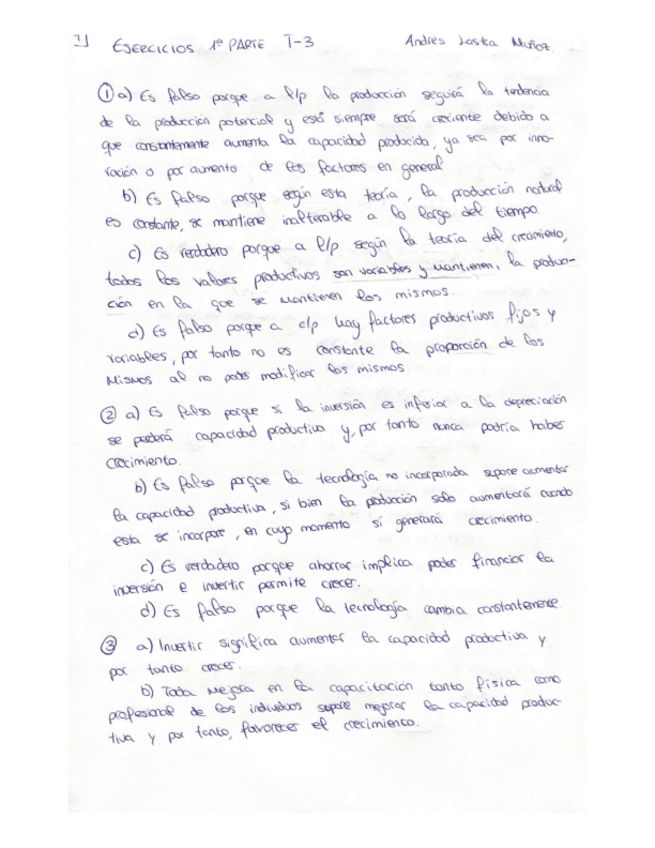 1] EJERCICIOS 1ª PARTE T-3 Andres Lostra Muñoz.
① a) Es falso porque a l/p la producción seguirá la tendencia
de la producción potencial y está siempre será creciente debido a
que constantemente aumenta la capacidad producida, ya sea por inno-
vación o por aumento de los factores en general
b) Es falso porque según esta teoría, la producción natural
es constante, se mantiene inalterable a lo largo del tiempo.
c) Es verdadero porque a l/p según la teoría del crecimiento,
todos los valores productivos son variables y mantienen, la produc-
ción en la que se mantienen los mismos.
d) Es falso porque a c/p hay factores productivos fijos y
variables, por tanto no es constante la proporción de los
mismos al no poder modificar los mismos.
② a) Es falso porque si la inversión es inferior a la depreciación
se perderá capacidad productiva y, por tanto nunca podría haber
crecimiento.
b) Es falso porque la tecnología no incorporada supone aumentar
la capacidad productiva, si bien la producción solo aumentará cuando
esta se incorpore, en cuyo momento sí generará crecimiento.
c) Es verdadero porque ahorrar implica poder financiar la
inversión e invertir permite crecer.
d) Es falso porque la tecnología cambia constantemente
③ a) Invertir significa aumentar la capacidad productiva y
por tanto crecer.
b) Toda mejora en la capacitación tanto física como
profesional de los individuos supone mejorar la capacidad produc-
tiva y por tanto, favorecer el crecimiento.